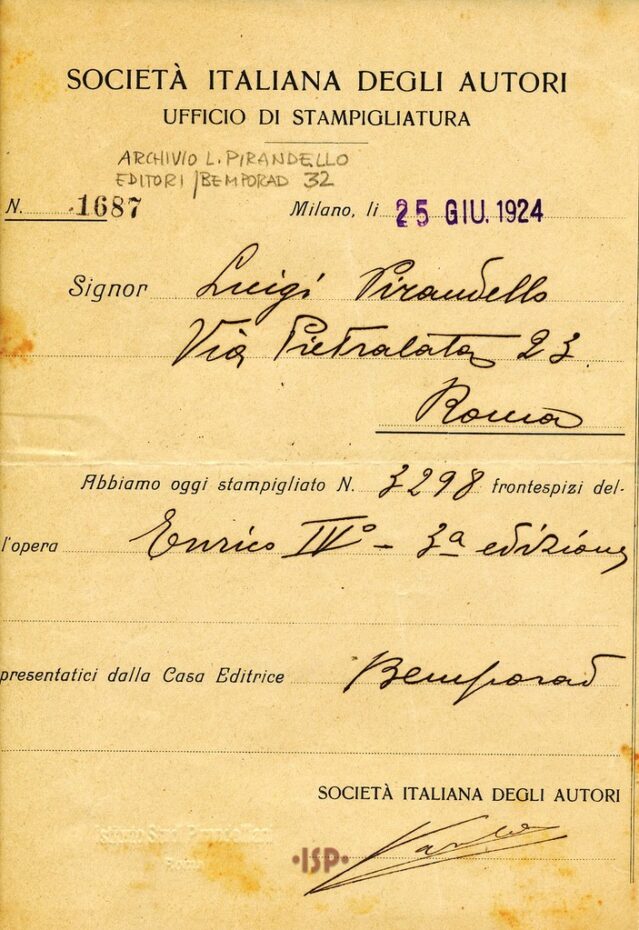 SOCIETÀ ITALIANA DEGLI AUTORI
UFFICIO DI STAMPIGLIATURA
ARCHIVIO L. PIRANDELLO
EDITORI / BEMPORAD 32
N. 1687 Milano, li 25 GIU. 1924
Signor Luigi Pirandello
Via Pietralata 23
Roma
Abbiamo oggi stampigliato N. 3298 frontespizi del-
l'opera Enrico IVº - 3ª edizione
presentatici dalla Casa Editrice Bemporad
SOCIETÀ ITALIANA DEGLI AUTORI
•ISP•